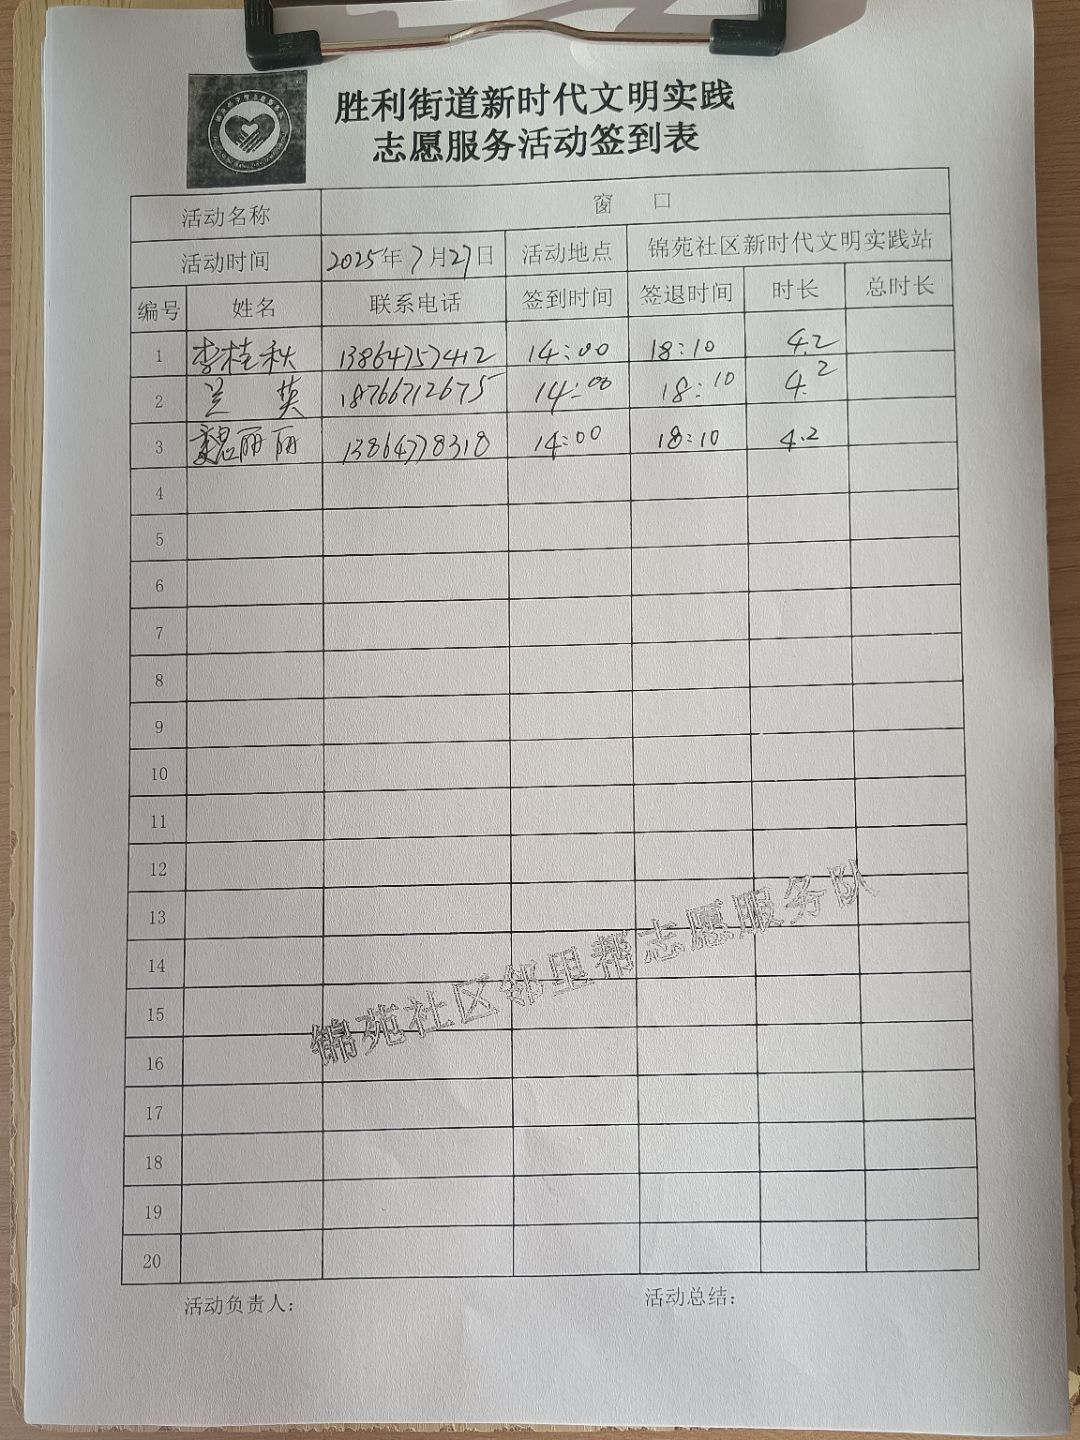 胜利街道新时代文明实践
志愿服务活动签到表
活动名称 窗 口
活动时间 2025年7月27日 活动地点 锦苑社区新时代文明实践站
编号 姓名 联系电话 签到时间 签退时间 时长 总时长
1 李桂秋 13864757412 14:00 18:10 4.2
2 兰 英 18766712675 14:00 18:10 4.2
3 魏丽丽 13864778318 14:00 18:10 4.2
4
5
6
7
8
9
10
11
12
13
14
15
16
17
18
19
20
锦苑社区邻里帮志愿服务队
活动负责人: 活动总结: